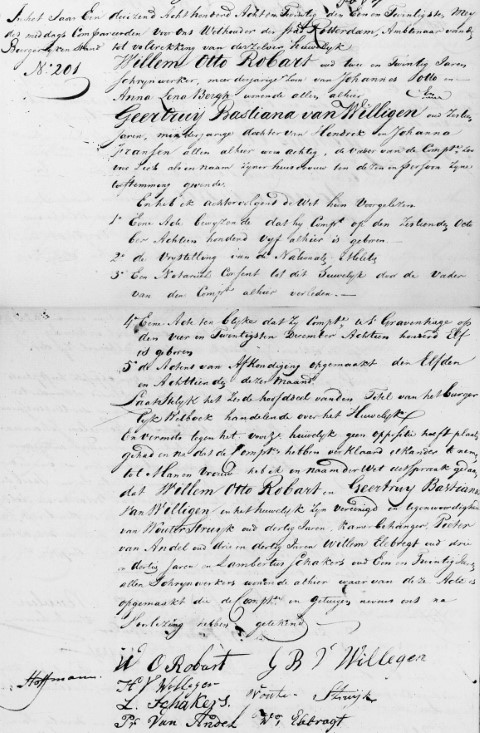 In het Jaar Een duizend Acht honderd Acht en Twintig den Een en Twintigsten Mey
des middags Compareerden voor Ons Wethouder der stad Rotterdam, Ambtenaar van den
Burgerlyken Stand tot voltrekking van derzelver Huwelyk
No. 201 Willem Otto Robart oud twee en Twintig Jaren
Schrynwerker, meerderjarige Zoon van Johannes Otto en
Anna Lena Bergh wonende allen alhier
Geertruy Bastiana van Willigen oud Zestien
Jaren, minderjarige dochter van Hendrik en Johanna
Fransen allen alhier woonachtig, de Vader van de Compte Zoo
voor Zich als in naam Zyner huisvrouw ten deze in persoon Zyne
toestemming gevende.
En heb ik achtervolgens de Wet hun Voorgelezen
1e Eene Acte bewyzende dat hy Compt op den Zestienden Octo
ber Achtien honderd vyf alhier is geboren
2e de Vrystelling van de Nationale Militie
3e Een Notarieel Consent tot dit Huwelyk door de Vader
van den Compt alhier verleden.
4e Eene Acte ten blyke dat Zy Compte te s'Gravenhage op
den vier en Twintigsten December Achtien honderd Elf
is geboren
5e de Acten van Afkondiging opgemaakt den Elfden
en Achttienden dezer Maand
Laatstelyk het Zesde hoofddeel van den Titel van het Burger
lyk Wetboek handelende over het Huwelyk
En vermits tegen het voorz. huwelyk geen oppositie heeft plaats
gehad en na dat de Compten hebben verklaard elkander te nemen
tot Man en Vrouw heb ik in naam der Wet uitspraak gedaan
dat Willem Otto Robart en Geertruy Bastiana
van Willigen in het huwelyk Zyn vereenigd in tegenwoordigheid
van Wouter Struyk oud dertig Jaren, Kamerbehanger, Pieter
van Andel oud drie en dertig Jaren Willem Elebregt oud drie
en dertig Jaren en Lambertus Schakers oud Een en Twintig Jaren
allen Schrynwerkers wonende alhier waar van deze Acte is
opgemaakt die de Compten en getuigen nevens ons na
Voorlezing hebben getekend
W O Robart G B V Willegen
Hoffman H V Willegen
L. Schakers. Wouter Struijk
Pr Van Andel Wm Elebregt